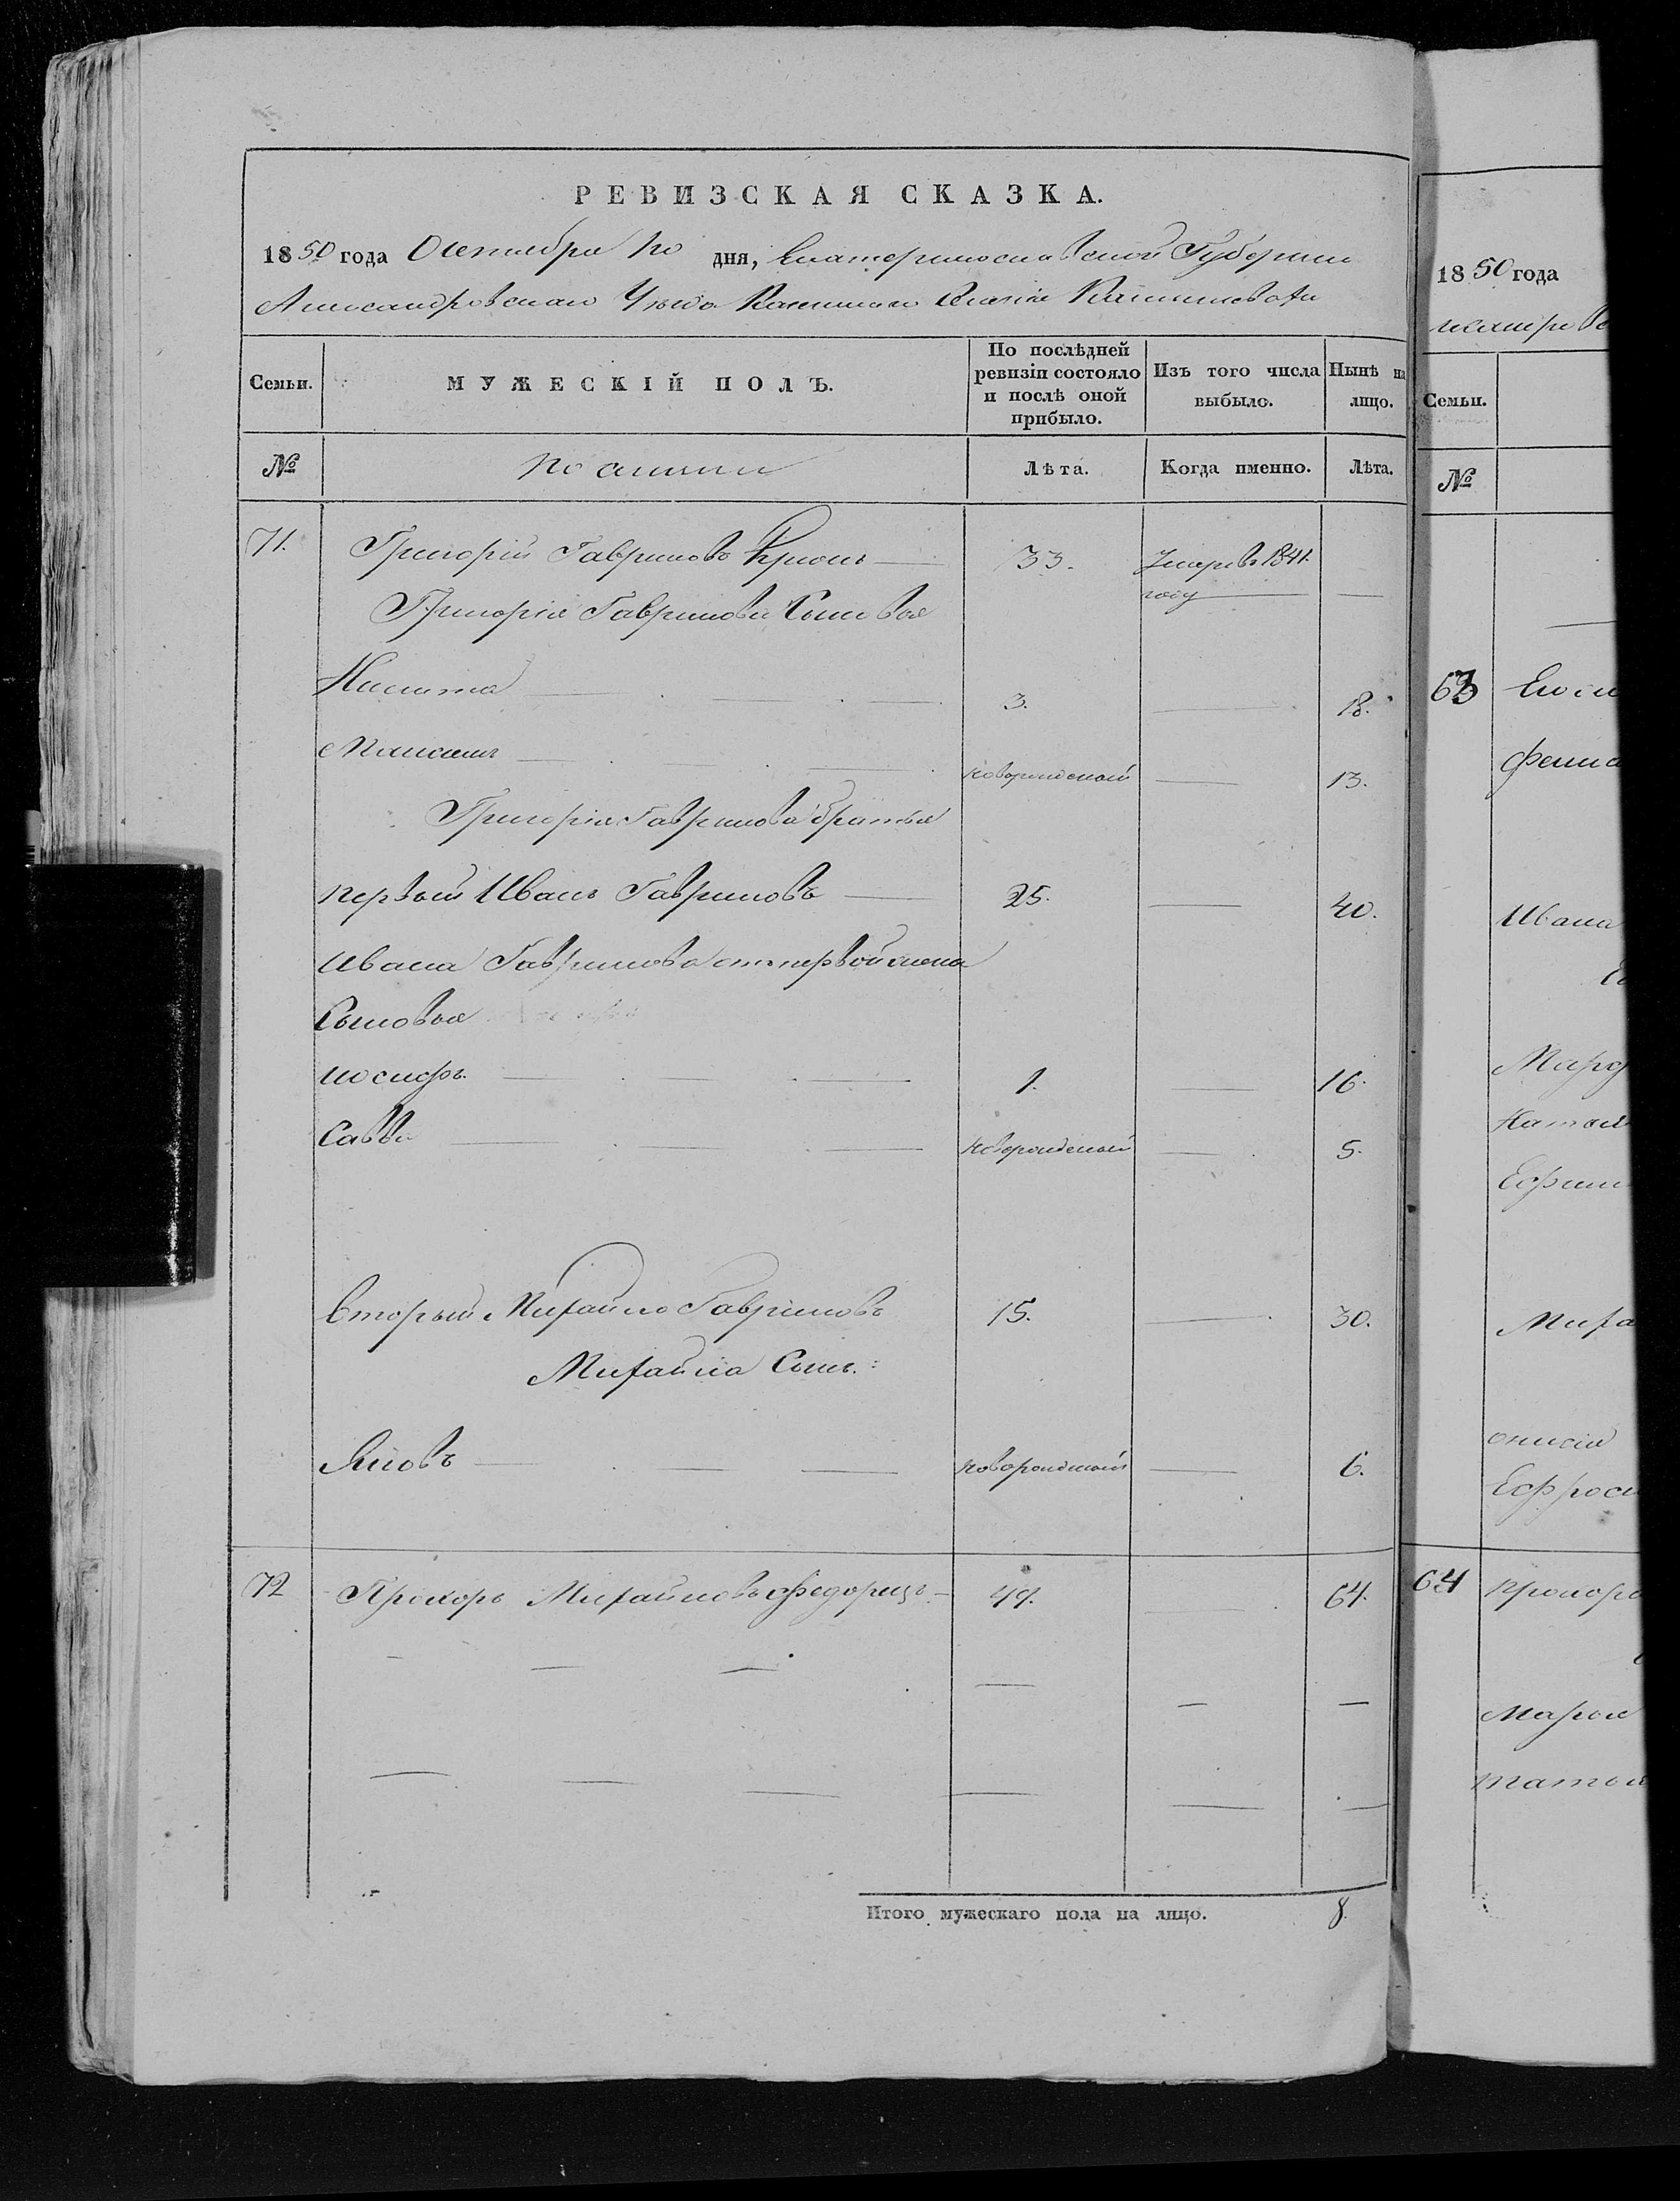 РЕВИЗСКАЯ СКАЗКА.
1850 года Октября 20 дня, Екатеринославской Губернии
Александровскаго Уѣзда Казеннаго Селенія
Семьи.
МУЖЕСКІЙ ПОЛЪ.
По послѣдней ревизіи состояло и послѣ оной прибыло.
Изъ того числа выбыло.
Нынѣ на лицо.
№
Лѣта.
Когда именно.
Лѣта.
71. Григорій Гавриловъ 33. Умеръ въ 1841.
году
Григорія Гаврилова Сыновья
Никита 3. 18.
Максимъ новорожденный 13.
Григорія Гаврилова братья
первый Иванъ Гавриловъ 25. 40.
Ивана Гаврилова отъ первой жены
Сыновья
Иосифъ 1. 16.
Савва новорожденный 5.
вторый Михайло Гавриловъ 15. 30.
Михайла Сынъ:
Яковъ новорожденный 6.
72 Прохоръ Михайловъ Федорецъ 49. 64.
Итого мужескаго пола на лицо. 8.
1850 года
Семьи.
№
63
Ивана
Ефим
Миха
Ефроси
64 Прохора
Марья